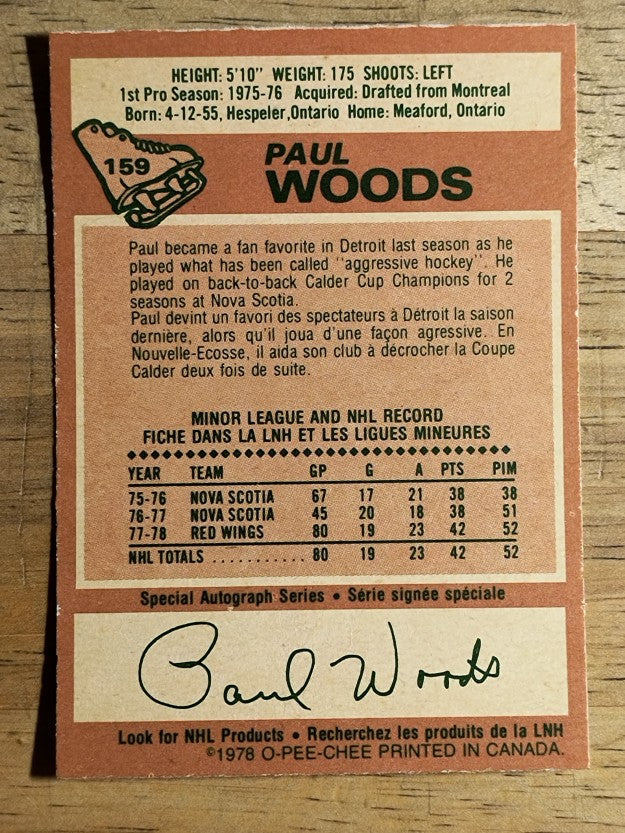 HEIGHT: 5'10" WEIGHT: 175 SHOOTS: LEFT
1st Pro Season: 1975-76 Acquired: Drafted from Montreal
Born: 4-12-55, Hespeler,Ontario Home: Meaford, Ontario
159
PAUL
WOODS
Paul became a fan favorite in Detroit last season as he
played what has been called "aggressive hockey". He
played on back-to-back Calder Cup Champions for 2
seasons at Nova Scotia.
Paul devint un favori des spectateurs à Détroit la saison
dernière, alors qu'il joua d'une façon agressive. En
Nouvelle-Ecosse, il aida son club à décrocher la Coupe
Calder deux fois de suite.
MINOR LEAGUE AND NHL RECORD
FICHE DANS LA LNH ET LES LIGUES MINEURES
YEAR TEAM GP G A PTS PIM
75-76 NOVA SCOTIA 67 17 21 38 38
76-77 NOVA SCOTIA 45 20 18 38 51
77-78 RED WINGS 80 19 23 42 52
NHL TOTALS ........... 80 19 23 42 52
Special Autograph Series • Série signée spéciale
Paul Woods
Look for NHL Products • Recherchez les produits de la LNH
©1978 O-PEE-CHEE PRINTED IN CANADA.